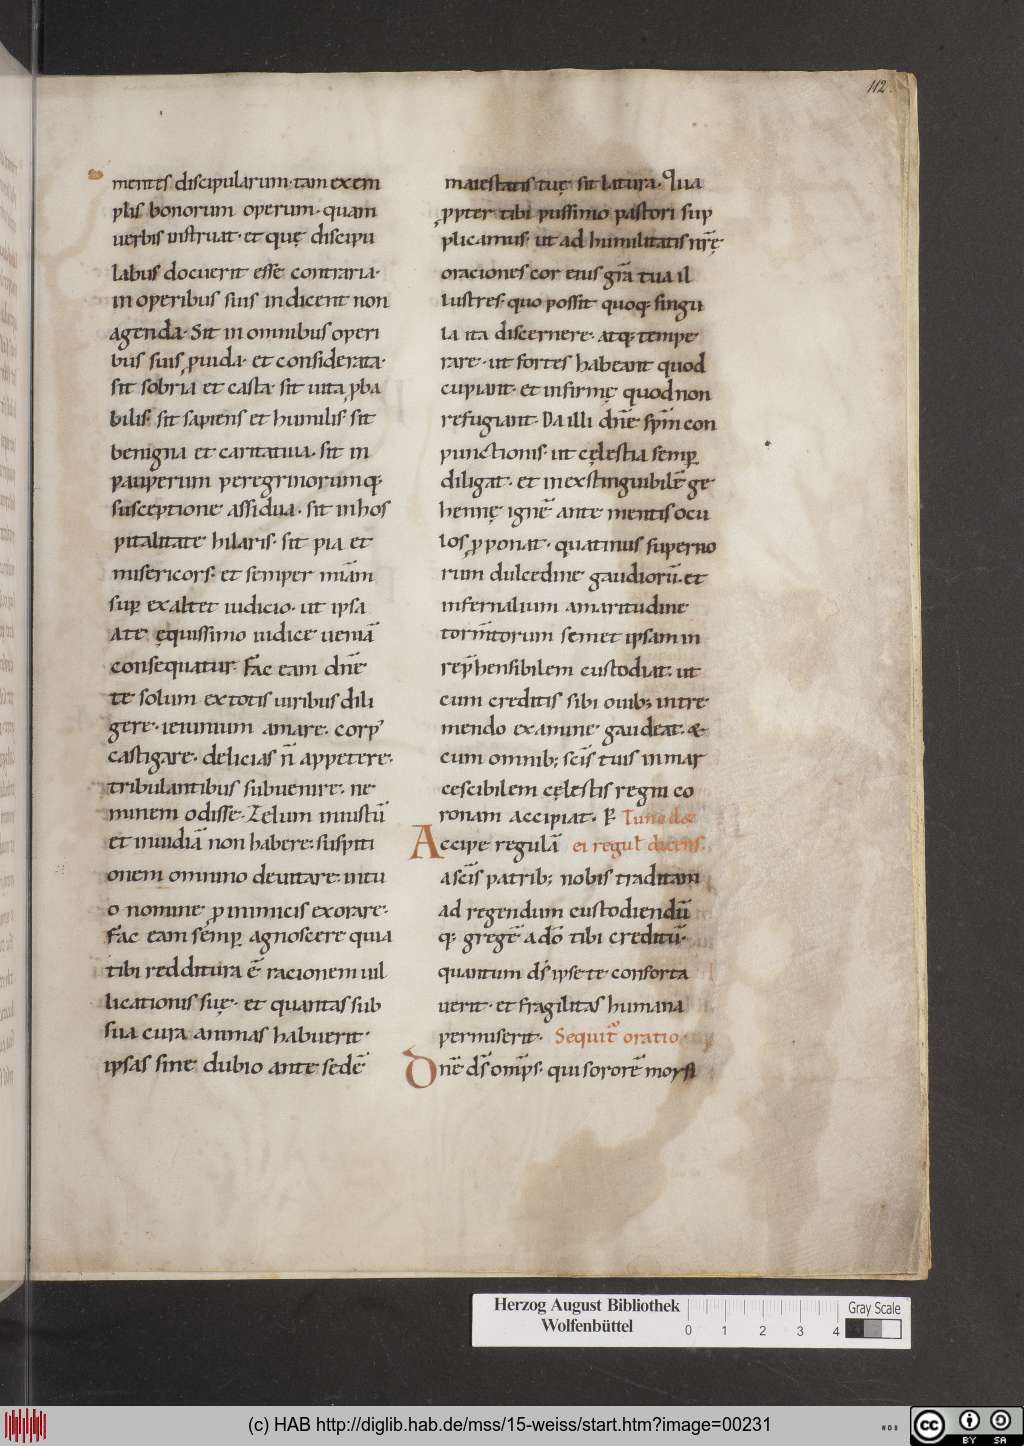 112
mentes discipularum· tam exem
plis bonorum operum· quam
uerbis instruat· et quę discipu
labus docuerit esse contraria·
in operibus suis indicent non
agenda· Sit in omnibus operi
bus suis ꝓuida· et considerata·
sit sobria et casta· sit uita ꝓba
bilis· sit sapiens et humilis· sit
benigna et caritatiua· sit in
pauperum peregrinorumq;
susceptione assidua· sit in hos
pitalitate hilaris· sit pia et
misericors· et semper miam̄
suꝑ exaltet iudicio· ut ipsa
ate ęquissimo iudice ueniā
consequatur· Fac eam dn̄e
te solum ex totis uiribus dili
gere· ieiunium amare· corp᾿
castigare· delicias n̄ appetere·
tribulantibus subuenire· ne
minem odisse· Zelum iniustū
et inuidiā non habere· suspiti
onem omnino deuitare· in tu
o nomine ꝓ inimicis exorare·
Fac eam semꝑ agnoscere quia
tibi redditura ē racionem uil
licationis suę· et quantas sub
sua cura animas habuerit·
ipsas sine dubio ante sedē
maiestatis tuę sit latura· Qua
ꝓpter tibi piissimo pastori sup
plicamus· ut ad humilitatis nr̄ę
oraciones cor eius gr̄a tua il
lustres· quo possit quoq; singu
la ita discernere· atq; tempe
rare· ut fortes habeant quod
cupiant· et infirmę quod non
refugiant· Da illi dn̄e sp̄m con
punctionis· ut cęlestia semꝑ
diligat· et inexstinguibilē ge
hennę ignē ante mentis ocu
los ꝓponat· quatinus superno
rum dulcedine gaudiorū· et
infernalium amaritudine
torm̄torum semet ipsam in
rep̄hensibilem custodiat· ut
cum creditis sibi ouib; in tre
mendo examine gaudeat· &
cum omnib; sc̄is tuis inmar
cescibilem cęlestis regni co
ronam accipiat· P̶ Tunc det
Accipe regulā ei regul̄ dicens·
a sc̄is patrib; nobis traditam
ad regendum custodiendū
q; gregē a dō tibi creditū·
quantum ds̄ ipse te conforta
uerit· et fragilitas humana
permiserit· Sequit᷑ oratio
Dn̄e ds̄ om̄ps· qui sororē moysi
Herzog August Bibliothek
Wolfenbüttel
0 1 2 3 4
Gray Scale
(c) HAB http://diglib.hab.de/mss/15-weiss/start.htm?image=00231
cc BY SA